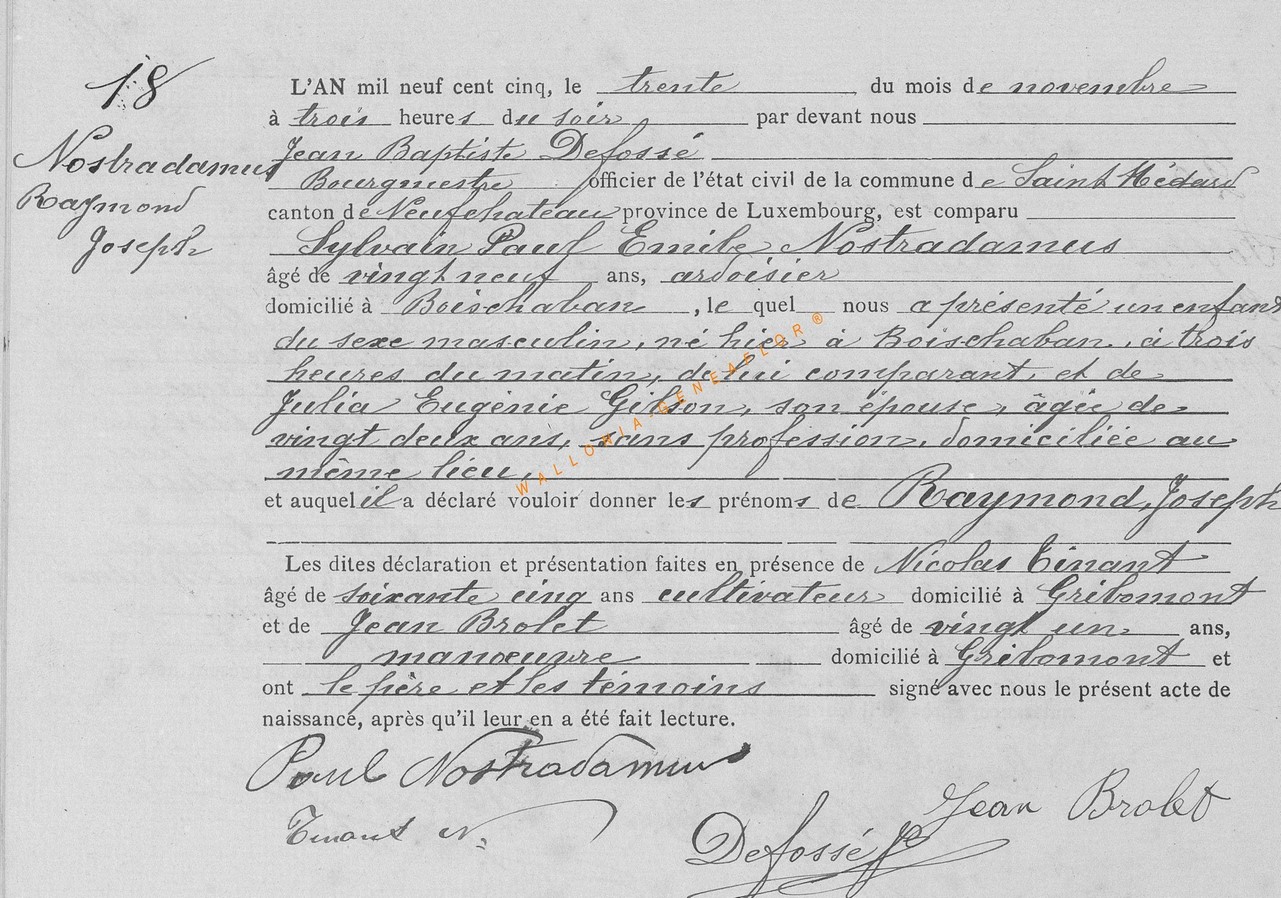 18
Nostradamus
Raymond
Joseph
L'AN mil neuf cent cinq, le trente du mois de novembre
à trois heures du soir par devant nous
Jean Baptiste Defossé
Bourgmestre officier de l'état civil de la commune de Saint Médard
canton de Neufchateau province de Luxembourg, est comparu
Sylvain Paul Emile Nostradamus
âgé de vingt neuf ans, ardoisier
domicilié à Boischaban, le quel nous a présenté un enfant
du sexe masculin, né hier à Boischaban, à trois
heures du matin, de lui comparant, et de
Julia Eugénie Gibson, son épouse, âgée de
vingt deux ans, sans profession, domiciliée au
même lieu,
et auquel il a déclaré vouloir donner les prénoms de Raymond, Joseph
Les dites déclaration et présentation faites en présence de Nicolas Tinant
âgé de soixante cinq ans cultivateur domicilié à Gribomont
et de Jean Brolet âgé de vingt un ans,
manœuvre domicilié à Gribomont et
ont le père et les témoins signé avec nous le présent acte de
naissance, après qu'il leur en a été fait lecture.
Paul Nostradamus
Jean Brolet
Tinant N.
Defossé
WALLONIA-GENEAFLOR ®